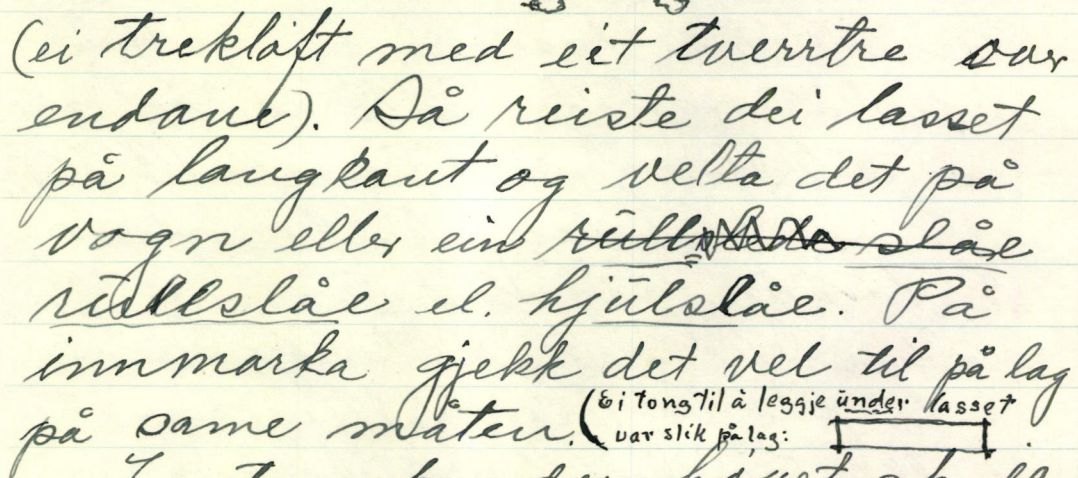 (ei trekløft med eit tverrtre over
endane). Så reiste dei lasset
på langkant og velta det på
vogn eller ein slåe
rullslåe el. hjulslåe. På
innmarka gjekk det vel til på lag
på same måten. (Ei tong til å leggje under lasset
var slik på lag: